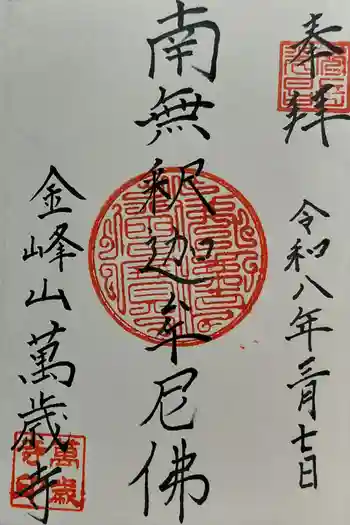 奉拝
令和八年三月七日
南無釈迦牟尼佛
金峰山萬歳寺